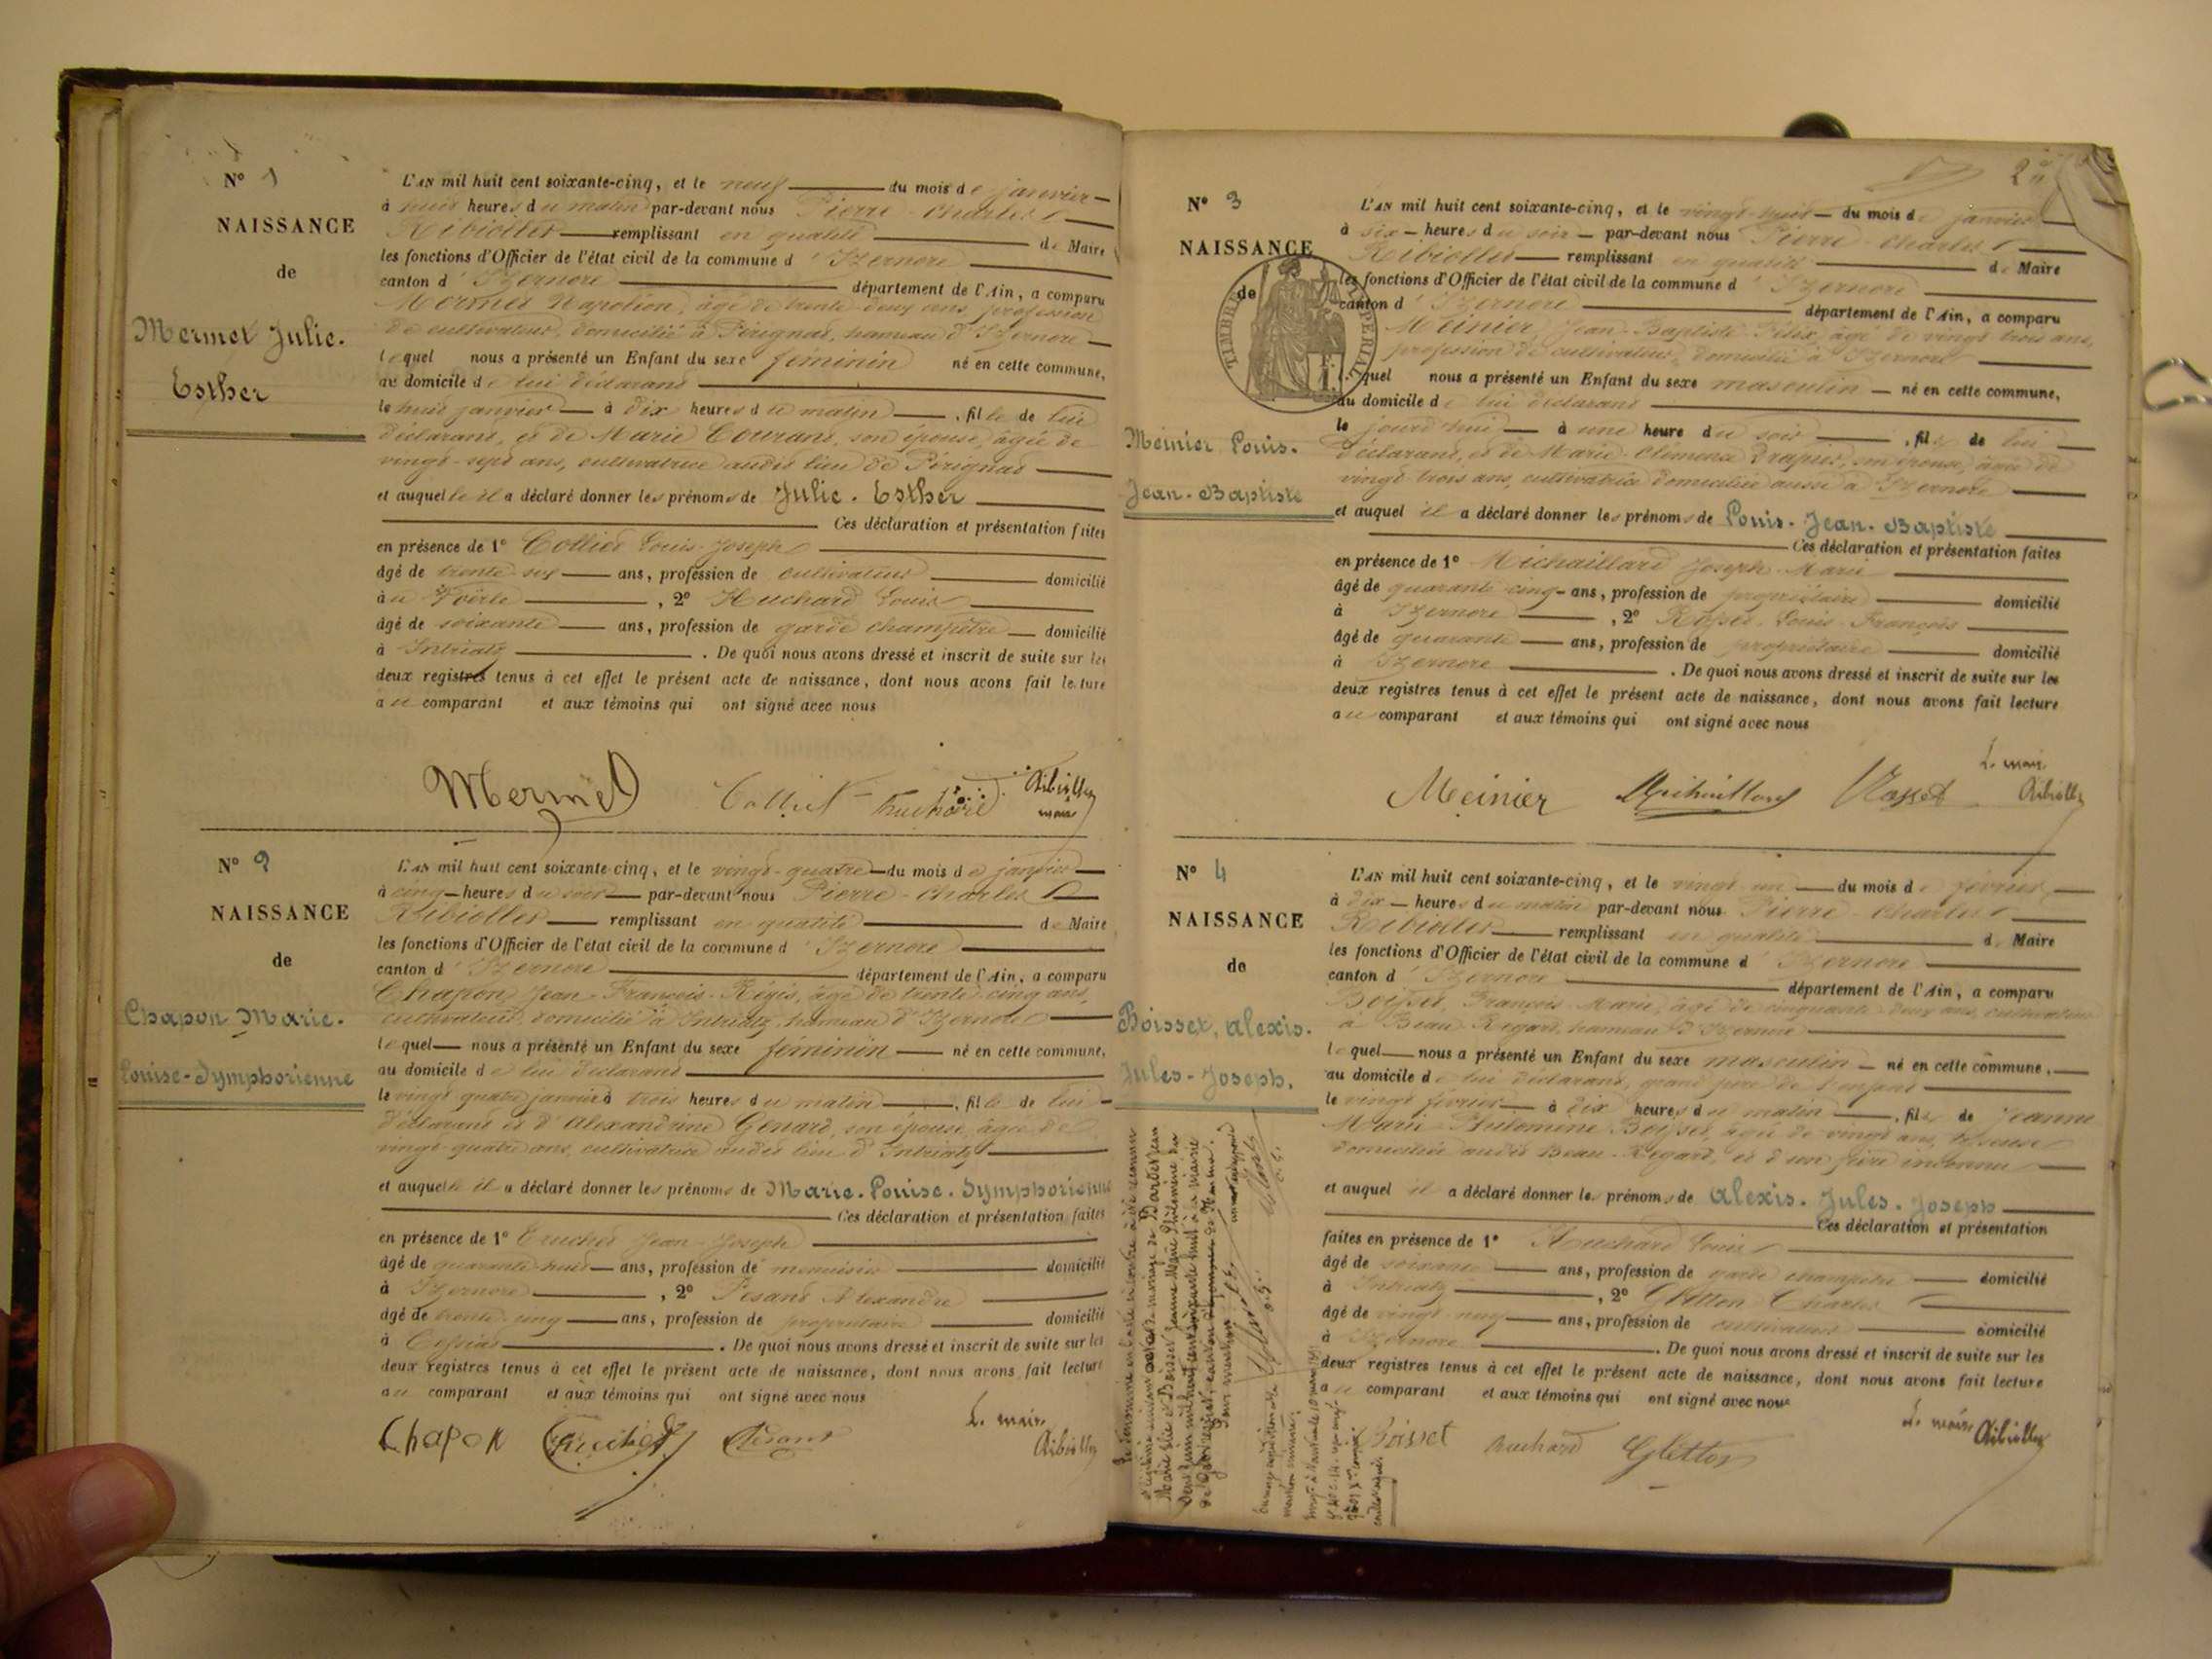 N° 1
NAISSANCE
de
Mermet Julie.
Esther
L'AN mil huit cent soixante-cinq, et le neuf du mois de janvier
à huit heures du matin par-devant nous Pierre-Charles
Ribiollet remplissant en qualité de Maire
les fonctions d'Officier de l'état civil de la commune d'Izernore
canton d'Izernore département de l'Ain, a comparu
Mermet Napoléon, âgé de trente deux ans, profession
de cultivateur, domicilié à Pérignat, hameau d'Izernore
lequel nous a présenté un Enfant du sexe féminin né en cette commune,
au domicile de lui déclarant
le huit janvier à dix heures du matin, fille de lui
déclarant, et de Marie Courant, son épouse, âgée de
vingt-sept ans, cultivatrice audit lieu de Pérignat
et auquelle il a déclaré donner les prénoms de Julie. Esther
Ces déclaration et présentation faites
en présence de 1° Colliet Louis-Joseph
âgé de trente ans, profession de cultivateur domicilié
à , 2° Huchard Louis
âgé de soixante ans, profession de garde champêtre domicilié
à Intriatz. De quoi nous avons dressé et inscrit de suite sur les
deux registres tenus à cet effet le présent acte de naissance, dont nous avons fait lecture
au comparant et aux témoins qui ont signé avec nous
Mermet Colliet huchard Ribiollet
maire
N° 2
NAISSANCE
de
Chapon Marie.
Louise-Symphorienne
L'AN mil huit cent soixante-cinq, et le vingt-quatre du mois de janvier
à cinq heures du soir par-devant nous Pierre-Charles
Ribiollet remplissant en qualité de Maire
les fonctions d'Officier de l'état civil de la commune d'Izernore
canton d'Izernore département de l'Ain, a comparu
Chapon Jean-François-Régis, âgé de trente-cinq ans,
cultivateur, domicilié à Intriatz, hameau d'Izernore
lequel nous a présenté un Enfant du sexe féminin né en cette commune,
au domicile de lui déclarant
le vingt quatre janvier à trois heures du matin, fille de lui
déclarant et d'Alexandrine Genard, son épouse, âgée de
vingt-quatre ans, cultivatrice audit lieu d'Intriatz
et auquelle il a déclaré donner les prénoms de Marie. Louise. Symphorienne
Ces déclaration et présentation faites
en présence de 1° Truchet Jean-Joseph
âgé de quarante-huit ans, profession de menuisier domicilié
à Izernore, 2° Pesant Alexandre
âgé de trente cinq ans, profession de propriétaire domicilié
à Ceissiat. De quoi nous avons dressé et inscrit de suite sur les
deux registres tenus à cet effet le présent acte de naissance, dont nous avons fait lecture
au comparant et aux témoins qui ont signé avec nous
Chapon Truchet Pesant L. maire
Ribiollet
2
N° 3
NAISSANCE
de
TIMBRE IMPERIAL
Meinier Louis.
Jean-Baptiste
L'AN mil huit cent soixante-cinq, et le vingt-huit du mois de janvier
à six heures du soir par-devant nous Pierre-Charles
Ribiollet remplissant en qualité de Maire
les fonctions d'Officier de l'état civil de la commune d'Izernore
canton d'Izernore département de l'Ain, a comparu
Meinier, Jean-Baptiste Félix, âgé de vingt trois ans,
profession de cultivateur, domicilié à Izernore
lequel nous a présenté un Enfant du sexe masculin né en cette commune,
au domicile de lui déclarant
le jourd'hui à une heure du soir, fils de lui
déclarant, et de Marie-Clémence Drapier, son épouse, âgée de
vingt trois ans, cultivatrice domiciliée aussi à Izernore
et auquel il a déclaré donner les prénoms de Louis. Jean. Baptiste
Ces déclaration et présentation faites
en présence de 1° Michaillard Joseph-Marie
âgé de quarante cinq ans, profession de propriétaire domicilié
à Izernore, 2° Rosset Louis-François
âgé de quarante ans, profession de propriétaire domicilié
à Izernore. De quoi nous avons dressé et inscrit de suite sur les
deux registres tenus à cet effet le présent acte de naissance, dont nous avons fait lecture
au comparant et aux témoins qui ont signé avec nous
Meinier Michaillard Rosset L. maire
Ribiollet
N° 4
NAISSANCE
de
Boisset, Alexis.
Jules-Joseph.
L'AN mil huit cent soixante-cinq, et le vingt un du mois de février
à dix heures du matin par-devant nous Pierre-Charles
Ribiollet remplissant en qualité de Maire
les fonctions d'Officier de l'état civil de la commune d'Izernore
canton d'Izernore département de l'Ain, a comparu
Boisset, François-Marie, âgé de cinquante deux ans, cultivateur
à Beau-Regard, hameau d'Izernore
lequel nous a présenté un Enfant du sexe masculin né en cette commune,
au domicile de lui déclarant, grand père de l'enfant
le vingt février à dix heures du matin, fils de Jeanne
Marie Philomène Boisset, âgée de vingt ans,
domiciliée audit Beau-Regard, et d'un père inconnu
et auquel il a déclaré donner les prénoms de Alexis. Jules. Joseph
Ces déclaration et présentation
faites en présence de 1° Huchard Louis
âgé de soixante ans, profession de garde champêtre domicilié
à Intriatz, 2° Gletton Charles
âgé de vingt neuf ans, profession de cultivateur domicilié
à Izernore. De quoi nous avons dressé et inscrit de suite sur les
deux registres tenus à cet effet le présent acte de naissance, dont nous avons fait lecture
au comparant et aux témoins qui ont signé avec nous
Boisset huchard Gletton L. maire Ribiollet